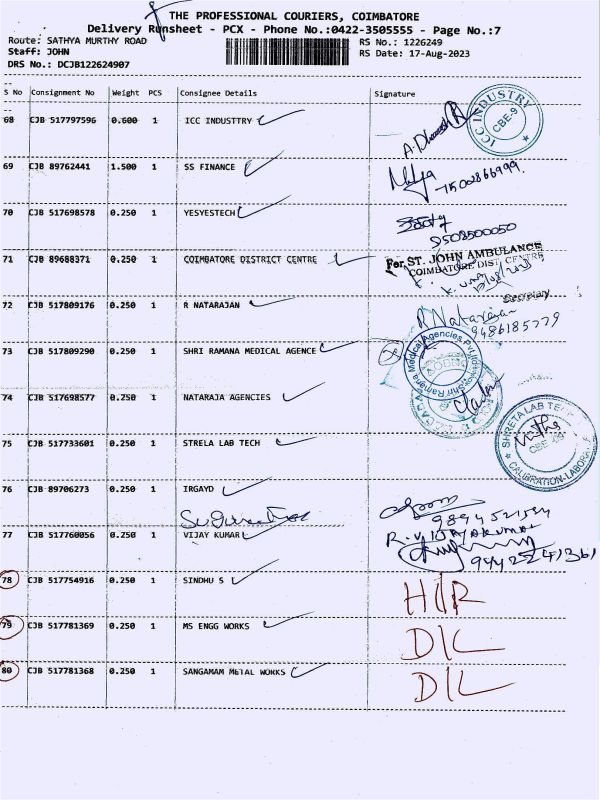 THE PROFESSIONAL COURIERS, COIMBATORE
Delivery Runsheet - PCX - Phone No.:0422-3505555 - Page No.:7
Route: SATHYA MURTHY ROAD RS No.: 1226249
Staff: JOHN RS Date: 17-Aug-2023
DRS No.: DCJB122624907
S No Consignment No Weight PCS Consignee Details Signature
68 CJB 517797596 0.600 1 ICC INDUSTTRY
ICC INDUSTRY CBE-9
69 CJB 89762441 1.500 1 SS FINANCE
70 CJB 517698578 0.250 1 YESYESTECH
9508500050
71 CJB 89688371 0.250 1 COIMBATORE DISTRICT CENTRE
For ST. JOHN AMBULANCE
COIMBATORE DIST. CENTRE
Secretary
72 CJB 517809176 0.250 1 R NATARAJAN R Natarajan
9486185779
73 CJB 517809290 0.250 1 SHRI RAMANA MEDICAL AGENCE
Shri Ramana Medical Agencies Pvt.
74 CJB 517698577 0.250 1 NATARAJA AGENCIES
75 CJB 517733601 0.250 1 STRELA LAB TECH
SHRETA LAB TECH CALIBRATION-LABORA
76 CJB 89706273 0.250 1 IRGAYD
9894521594
77 CJB 517760056 0.250 1 VIJAY KUMAR R.VIJAYAKUMAR
9442241361
78 CJB 517754916 0.250 1 SINDHU S H/R
79 CJB 517781369 0.250 1 MS ENGG WORKS D/L
80 CJB 517781368 0.250 1 SANGAMAM METAL WORKS D/L